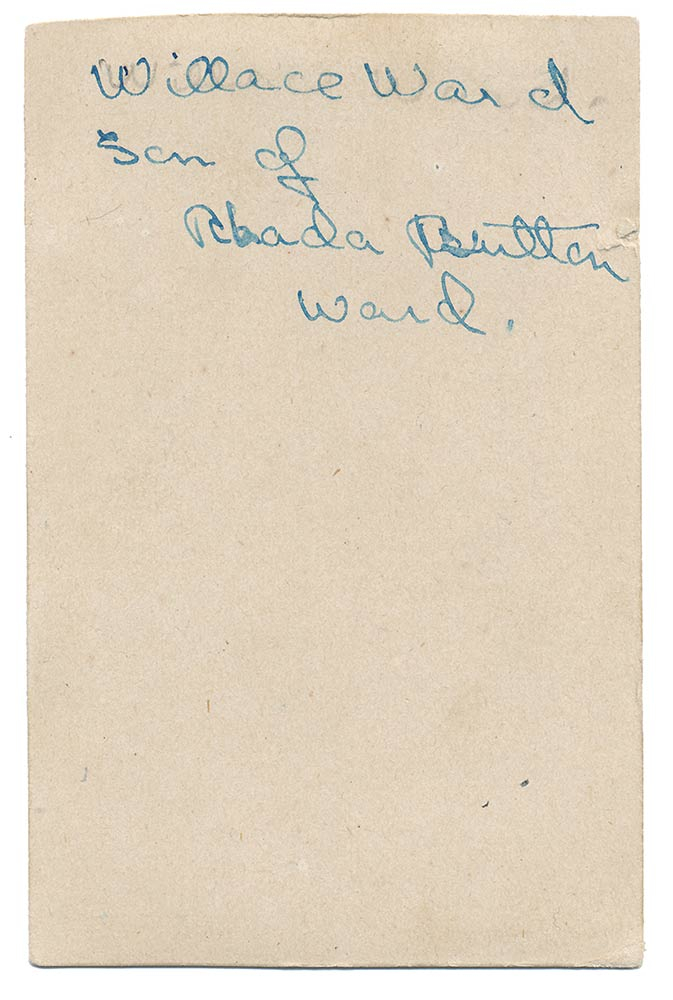 Willace Ward
Son of
Rhada Button
Ward.